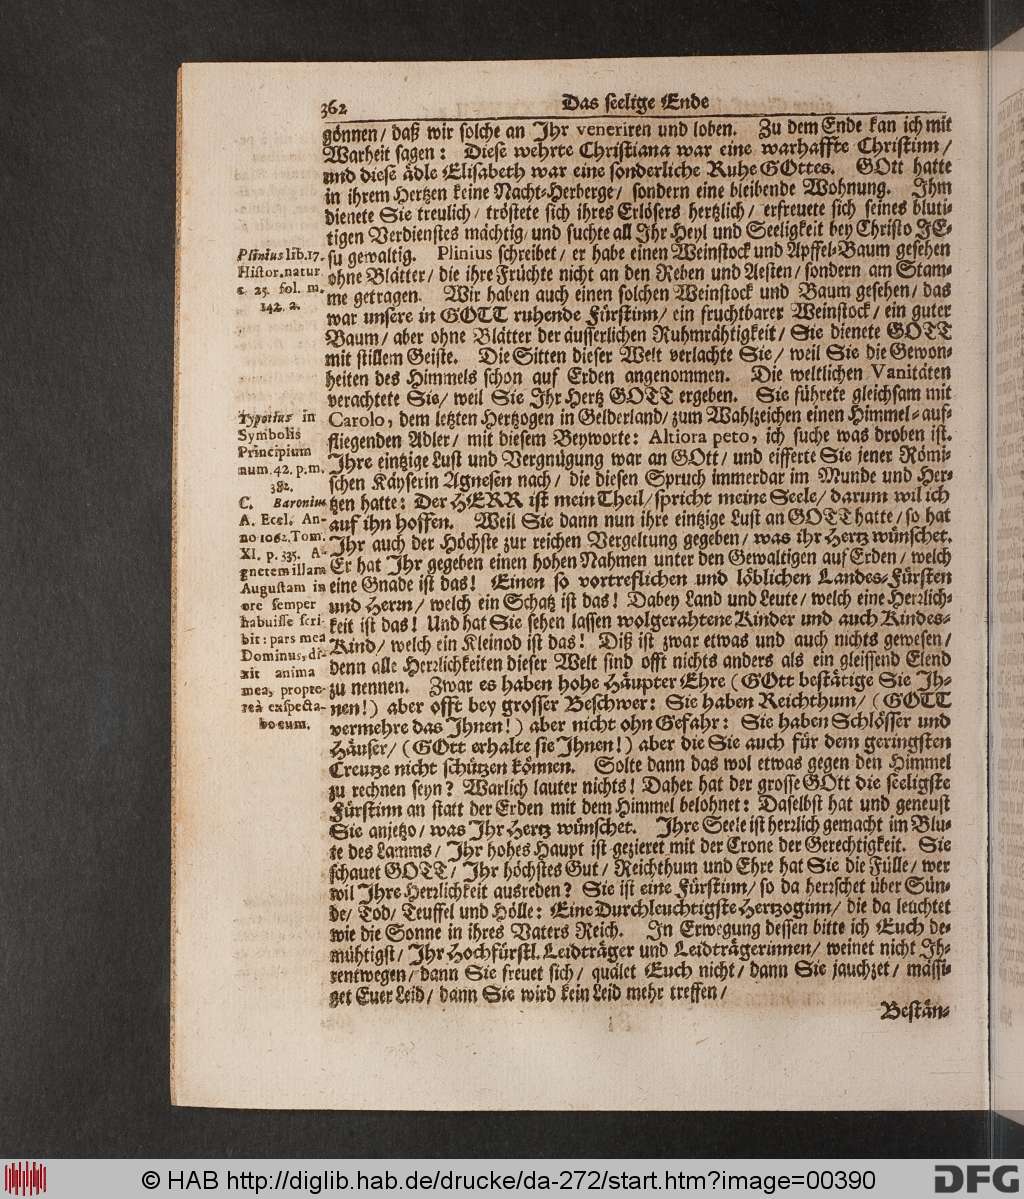 362
Das seelige Ende
gönnen/ daß wir solche an Ihr veneriren und loben. Zu dem Ende kan ich mit
Warheit sagen: Diese wehrte Christiana war eine warhaffte Christinn/
und diese ädle Elisabeth war eine sonderliche Ruhe GOttes. GOtt hatte
in ihrem Hertzen keine Nacht-Herberge/ sondern eine bleibende Wohnung. Ihm
dienete Sie treulich/ tröstete sich ihres Erlösers hertzlich/ erfreuete sich seines bluti-
tigen Verdienstes mächtig/ und suchte all Ihr Heyl und Seeligkeit bey Christo JE-
su gewaltig. Plinius schreibet/ er habe einen Weinstock und Apffel-Baum gesehen
ohne Blätter/ die ihre Früchte nicht an den Reben und Aesten/ sondern am Stam-
me getragen. Wir haben auch einen solchen Weinstock und Baum gesehen/ das
war unsere in GOTT ruhende Fürstinn/ ein fruchtbarer Weinstock/ ein guter
Baum/ aber ohne Blätter der äusserlichen Ruhmrähtigkeit/ Sie dienete GOTT
mit stillem Geiste. Die Sitten dieser Welt verlachte Sie/ weil Sie die Gewon-
heiten des Himmels schon auf Erden angenommen. Die weltlichen Vanitäten
verachtete Sie/ weil Sie Ihr Hertz GOTT ergeben. Sie führete gleichsam mit
Carolo, dem letzten Hertzogen in Gelderland/ zum Wahlzeichen einen Himmel-auf-
fliegenden Adler/ mit diesem Beyworte: Altiora peto, ich suche was droben ist.
Ihre eintzige Lust und Vergnügung war an GOtt/ und eifferte Sie jener Römi-
schen Käyserin Agnesen nach/ die diesen Spruch immerdar im Munde und Her-
tzen hatte: Der HERR ist mein Theil/ spricht meine Seele/ darum wil ich
auf ihn hoffen. Weil Sie dann nun ihre eintzige Lust an GOTT hatte/ so hat
Ihr auch der Höchste zur reichen Vergeltung gegeben/ was ihr Hertz wünschet.
Er hat Ihr gegeben einen hohen Nahmen unter den Gewaltigen auf Erden/ welch
eine Gnade ist das! Einen so vortreflichen und löblichen Landes-Fürsten
und Herrn/ welch ein Schatz ist das! Dabey Land und Leute/ welch eine Herrlich-
keit ist das! Und hat Sie sehen lassen wolgerahtene Kinder und auch Kindes-
Kind/ welch ein Kleinod ist das! Diß ist zwar etwas und auch nichts gewesen/
denn alle Herrlichkeiten dieser Welt sind offt nichts anders als ein gleissend Elend
zu nennen. Zwar es haben hohe Häupter Ehre (GOtt bestätige Sie Ih-
nen!) aber offt bey grosser Beschwer: Sie haben Reichthum/ (GOTT
vermehre das Ihnen!) aber nicht ohn Gefahr: Sie haben Schlösser und
Häuser/ (GOtt erhalte sie Ihnen!) aber die Sie auch für dem geringsten
Creutze nicht schützen können. Solte dann das wol etwas gegen den Himmel
zu rechnen seyn? Warlich lauter nichts! Daher hat der grosse GOtt die seeligste
Fürstinn an statt der Erden mit dem Himmel belohnet: Daselbst hat und geneust
Sie anjetzo/ was Ihr Hertz wünschet. Ihre Seele ist herrlich gemacht im Blu-
te des Lamms/ Ihr hohes Haupt ist gezieret mit der Crone der Gerechtigkeit. Sie
schauet GOTT/ Ihr höchstes Gut/ Reichthum und Ehre hat Sie die Fülle/ wer
wil Ihre Herrlichkeit ausreden? Sie ist eine Fürstinn/ so da herrschet über Sün-
de/ Tod/ Teuffel und Hölle: Eine Durchleuchtigste Hertzoginn/ die da leuchtet
wie die Sonne in ihres Vaters Reich. In Erwegung dessen bitte ich Euch de-
mühtigst/ Ihr Hochfürstl. Leidträger und Leidträgerinnen/ weinet nicht Ih-
rentwegen/ dann Sie freuet sich/ quälet Euch nicht/ dann Sie jauchzet/ mässi-
get Euer Leid/ dann Sie wird kein Leid mehr treffen/
Bestän-
Plinius lib. 17.
Histor. natur.
c. 25. fol. m.
142. 2.
Typotius in
Symbolis
Principium
num. 42. p. m.
382.
C. Baronius
A. Eccl. An-
no 1062. Tom.
XI. p. 335. A-
gnetem illam
Augustam in
ore semper
habuisse scri-
bit: pars mea
Dominus, di-
xit anima
mea, propte-
reà exspecta-
bo eum.
© HAB http://diglib.hab.de/drucke/da-272/start.htm?image=00390
DFG